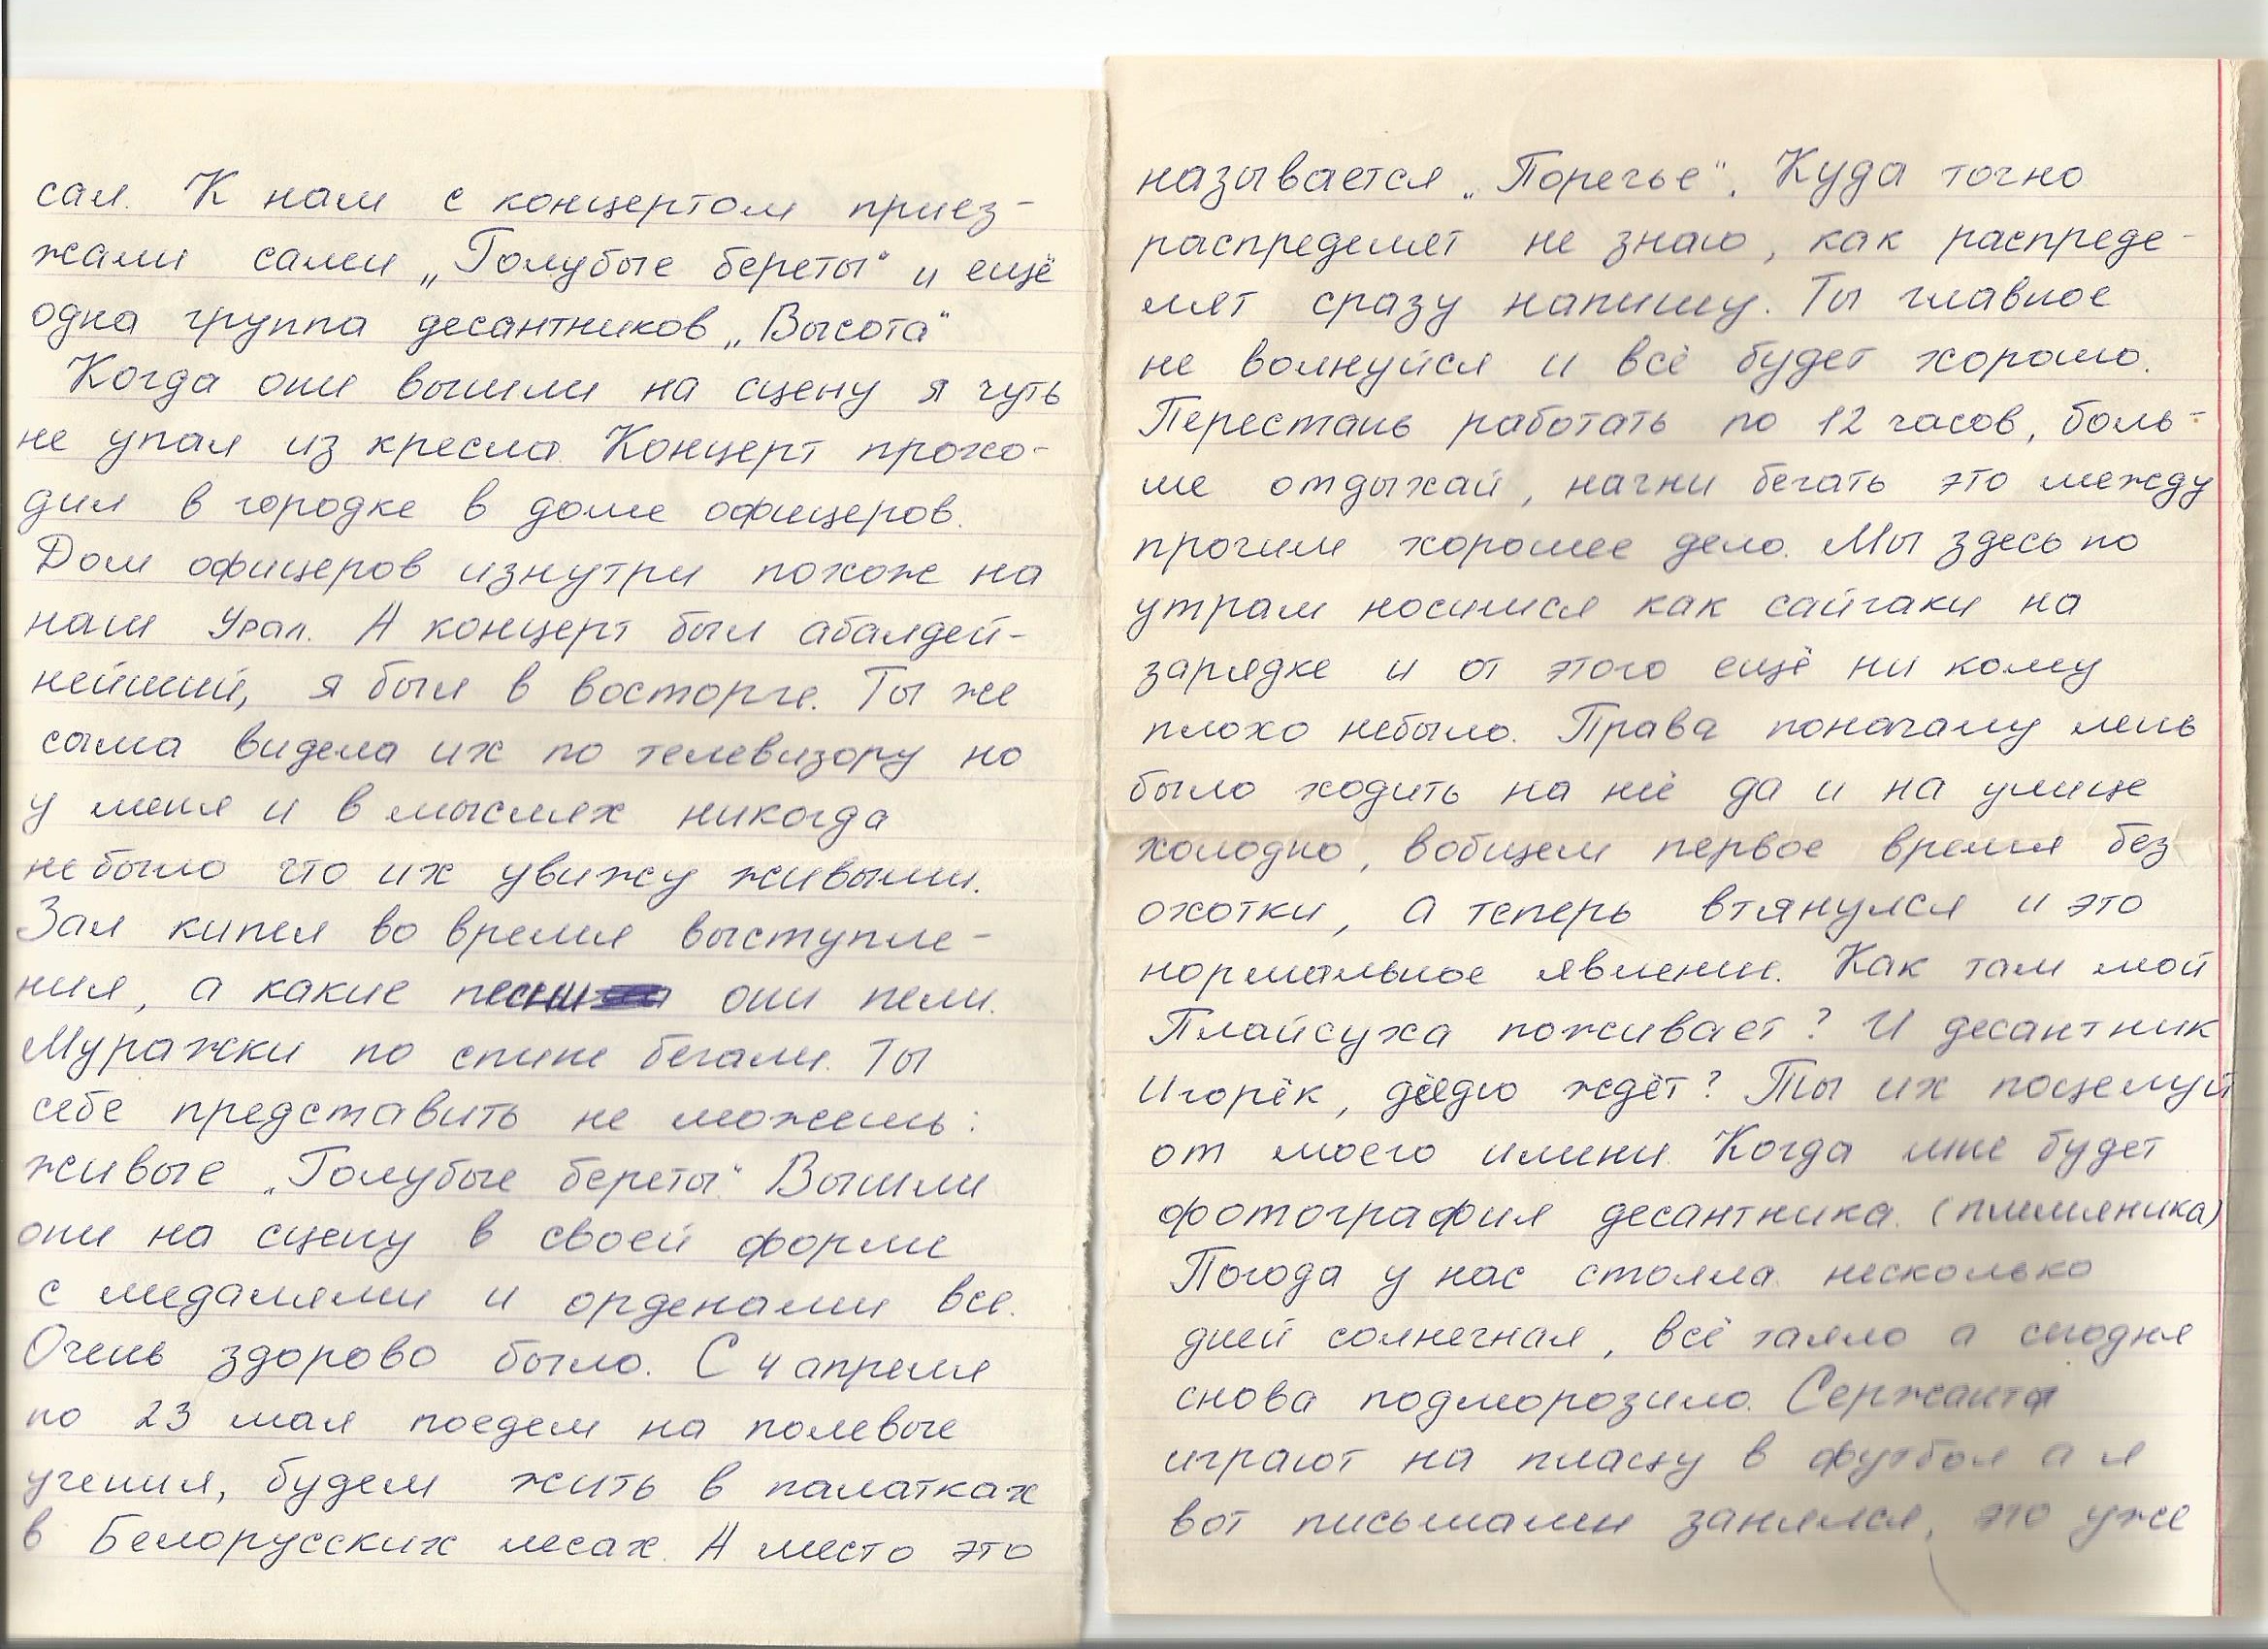 сал. К нам с концертом приез-
жали сами „Голубые береты" и ещё
одна группа десантников „Высота"
Когда они вышли на сцену я чуть
не упал из кресла. Концерт прохо-
дил в городке в доме офицеров.
Дом офицеров изнутри похож на
наш Урал. А концерт был абалдей-
нейший, я был в восторге. Ты же
сама видела их по телевизору но
у меня и в мыслях никогда
небыло что их увижу живыми.
Зал кипел во время выступле-
ния, а какие песни они пели.
Муражки по спине бегали. Ты
себе представить не можешь:
живые „Голубые береты". Вышли
они на сцену в своей форме
с медалями и орденами все.
Очень здорово было. С 4 апреля
по 23 мая поедем на полевые
учения, будем жить в палатках
в Белорусских лесах. А место это
называется „Поречье". Куда точно
распределят не знаю, как распреде-
лят сразу напишу. Ты главное
не волнуйся и всё будет хорошо.
Перестань работать по 12 часов, боль-
ше отдыхай, начни бегать это между
прочим хорошее дело. Мы здесь по
утрам носимся как сайгаки на
зарядке и от этого ещё ни кому
плохо небыло. Права поначалу лень
было ходить на неё да и на улице
холодно, вобщем первое время без
охотки, а теперь втянулся и это
нормальное явление. Как там мой
Плайсуха поживает? И десантник
Игорёк, дёдю ждёт? Ты их поцелуй
от моего имени. Когда мне будет
фотография десантника. (племяника)
Погода у нас стояла несколько
дней солнечная, всё таяло а сегодня
снова подморозило. Сержанты
играют на плацу в футбол а я
вот письмами занялся, это уже